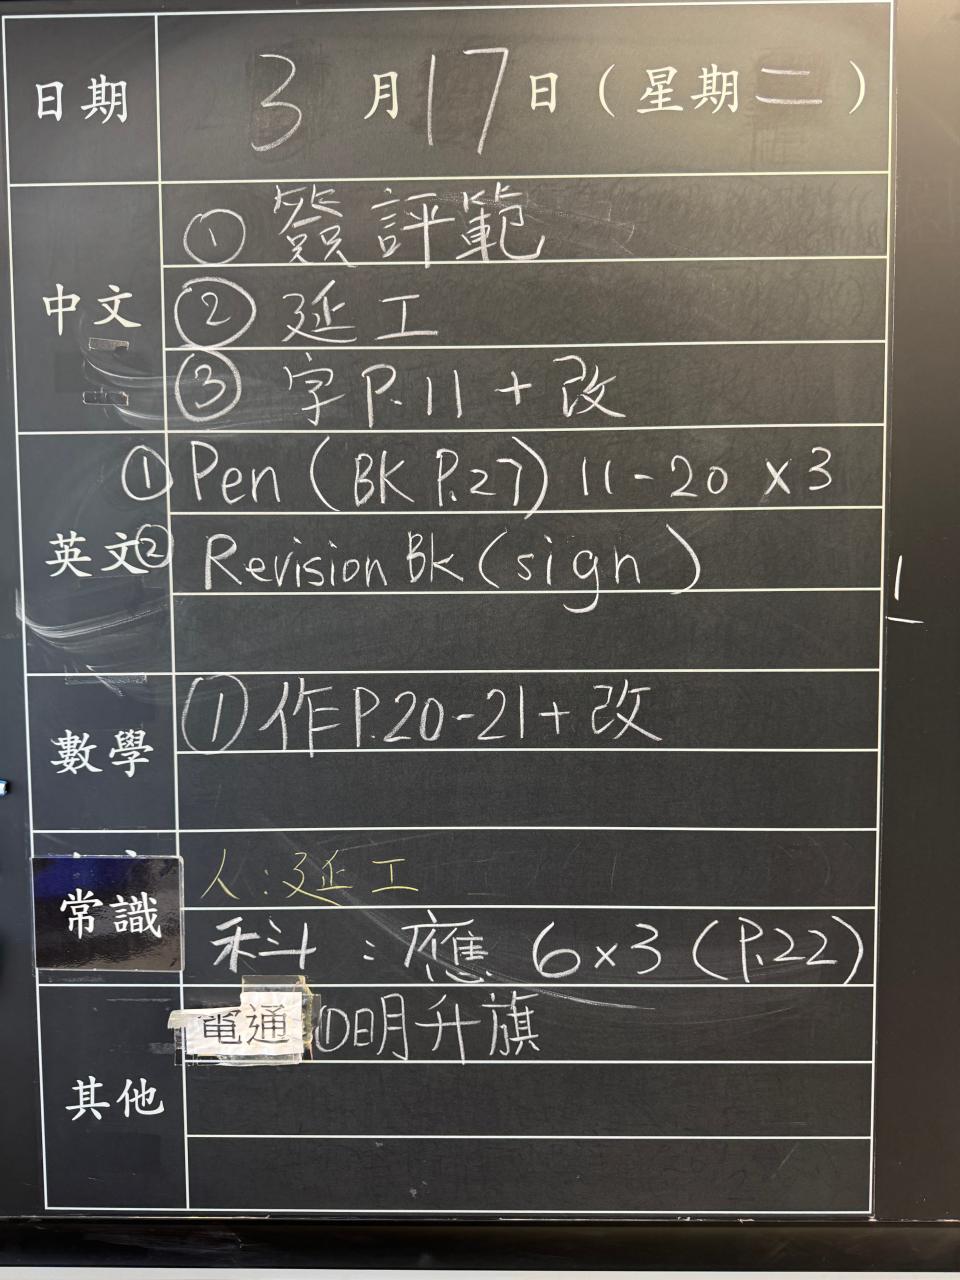 日期 3月17日(星期二)
中文
① 簽評範
② 延工
③ 字P.11+改
英文
① Pen (BK P.27) 11-20 x3
② Revision Bk (sign)
數學
① 作P.20-21+改
常識
人:延工
科:應 6x3 (P.22)
其他
電通 ①明升旗